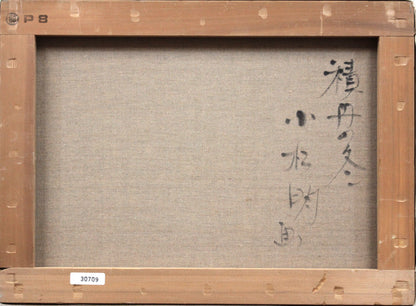 P8
積丹の冬
小松明画
30709